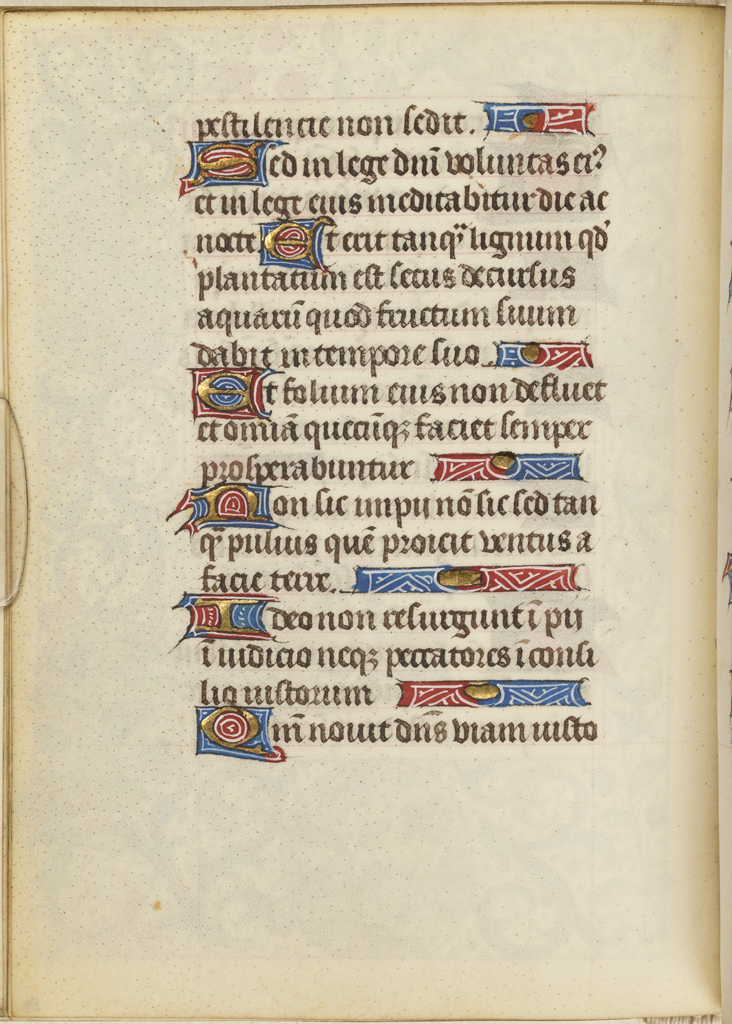 pestilencie non sedit.
Sed in lege dnī voluntas ei⁹
et in lege eius meditabitur die ac
nocte. Et erit tanqᵃ lignum qd̓
plantatum est secus decursus
aquarū quod fructum suum
dabit in tempore suo.
Et folium eius non defluet
et omīa quecūqꝫ faciet semper
prosperabuntur
Non sic impii nō sic sed tan
qᵃ pulius quē proicit ventus a
facie terre.
Ideo non resurgunt īpii
ī iudicio neqꝫ peccatores ī consi
lio iustorum
Qm̄ nouit dns̄ viam iusto